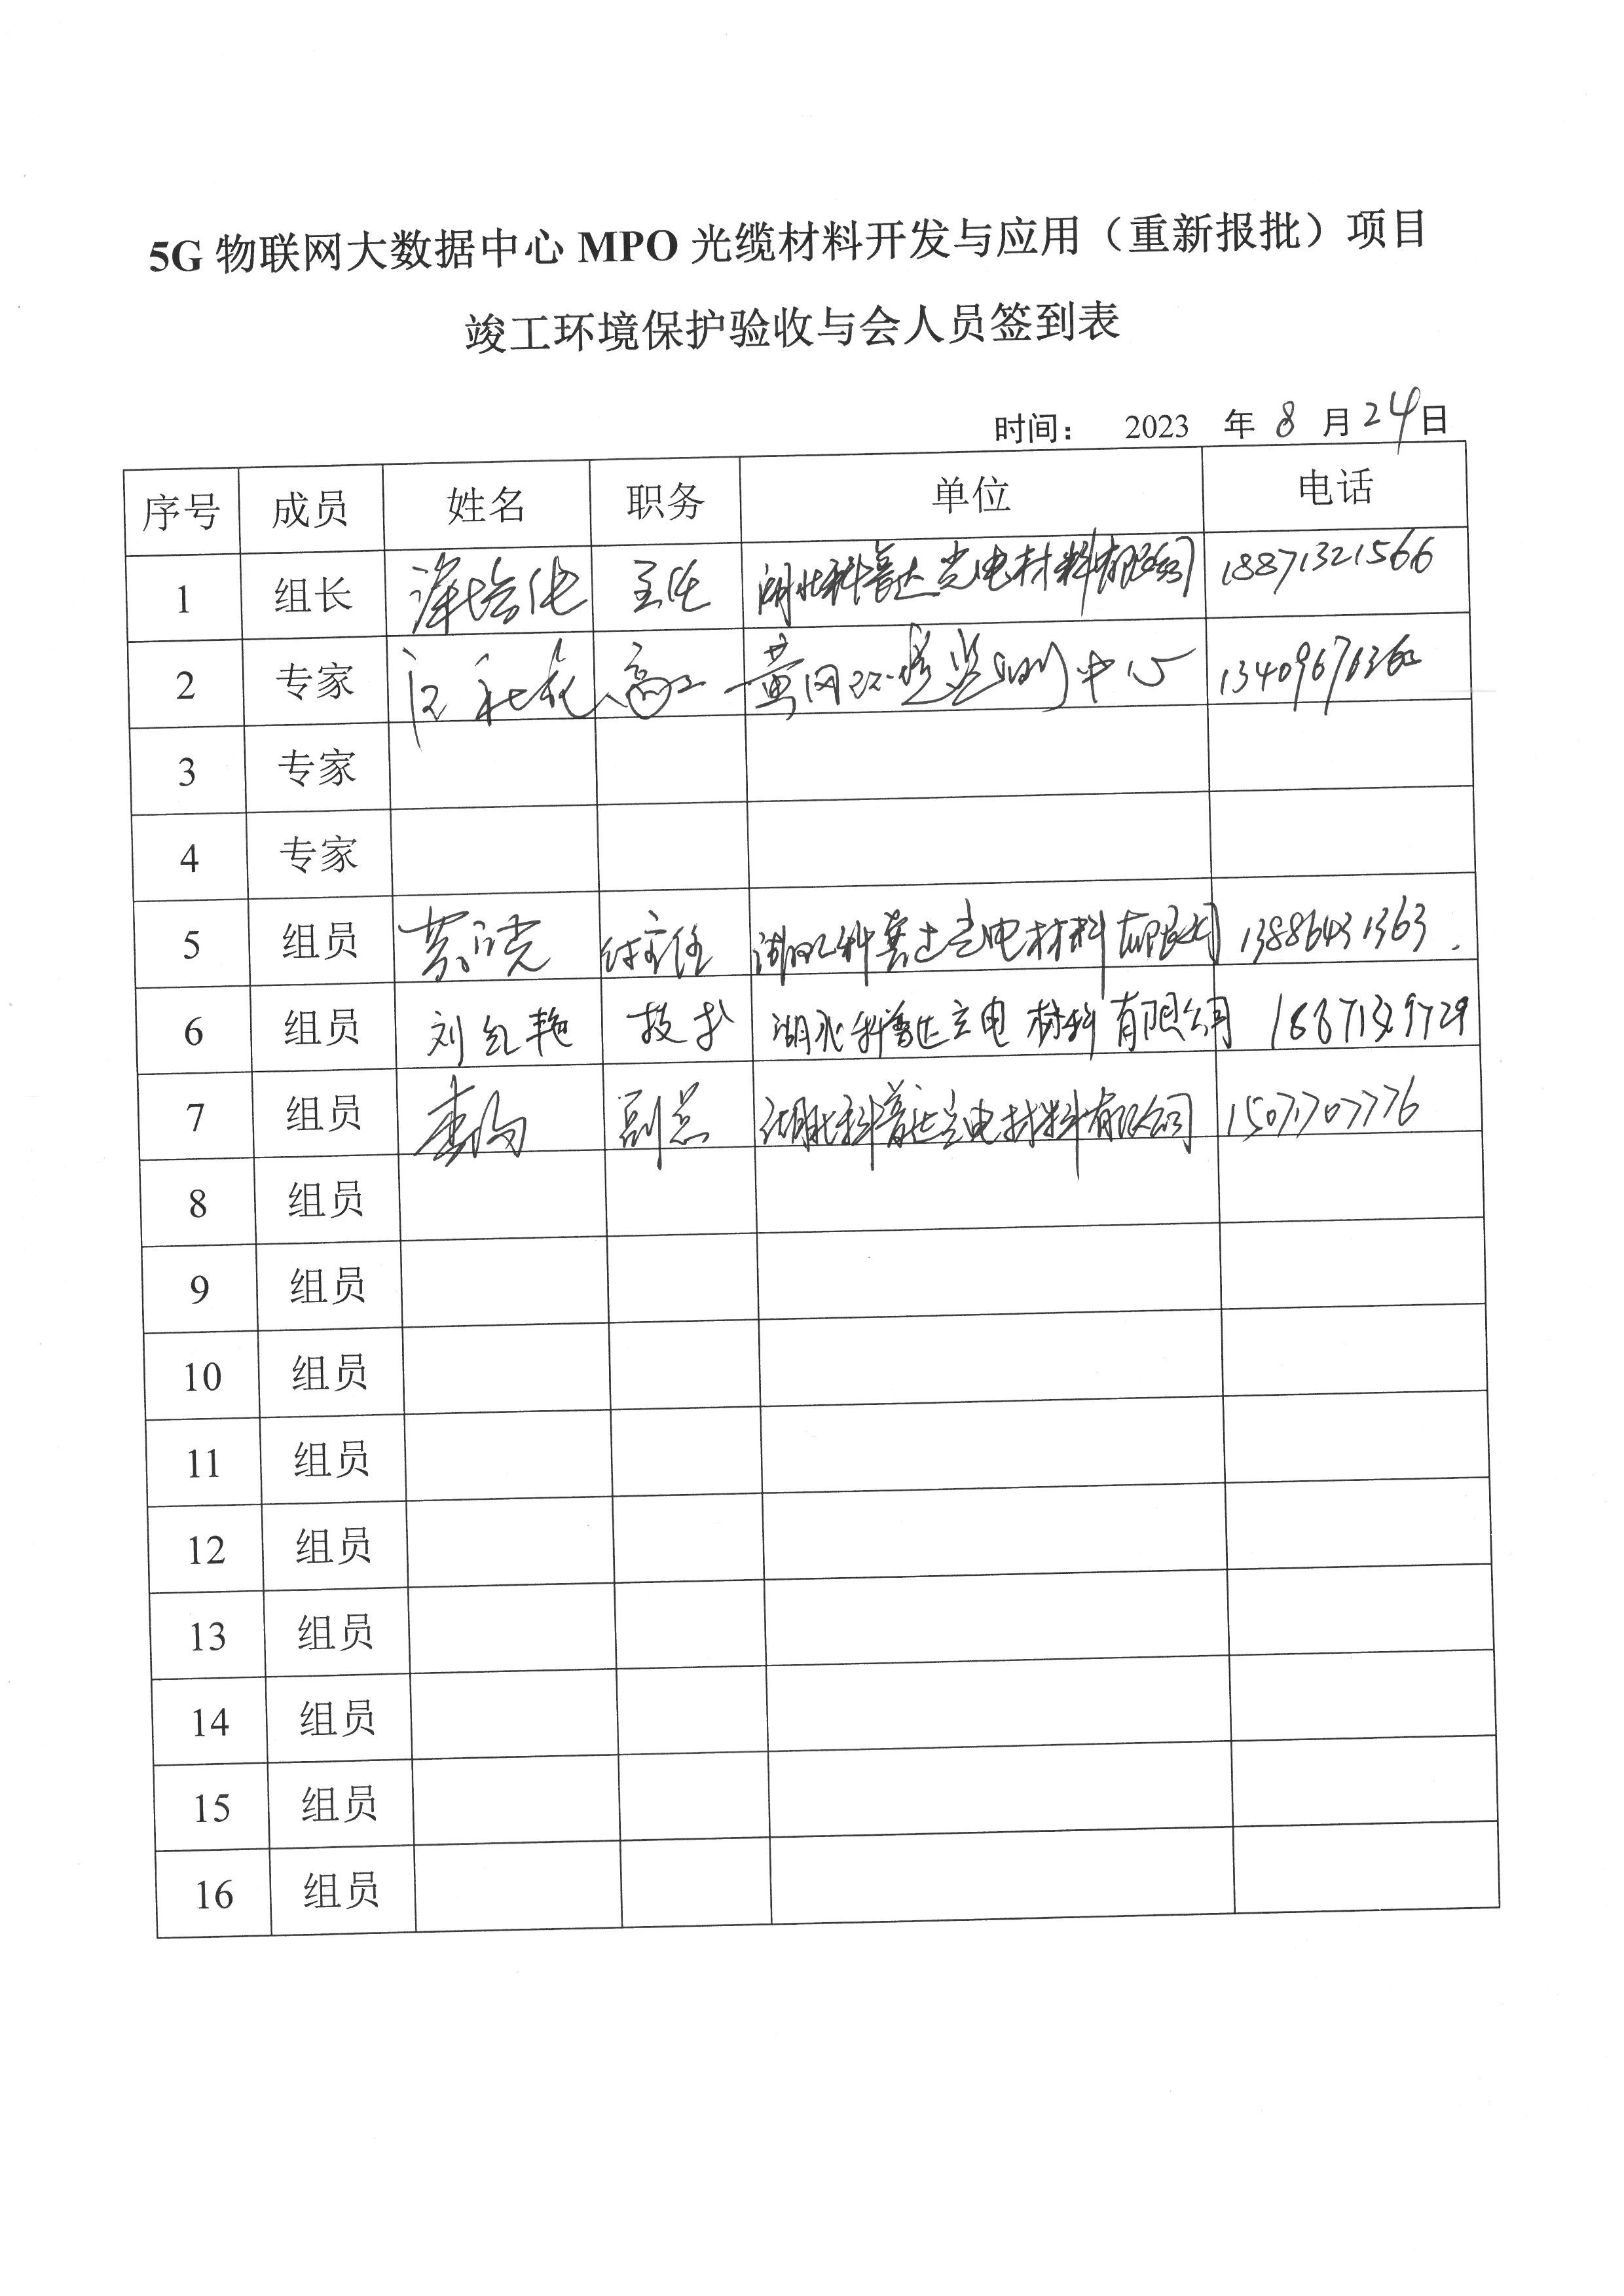 5G 物联网大数据中心 MPO 光缆材料开发与应用（重新报批）项目
竣工环境保护验收与会人员签到表
时间： 2023 年 8 月 24 日
序号 成员 姓名 职务 单位 电话
1 组长 主任 湖北科普达光电材料有限公司 18871321566
2 专家 高工 黄冈环境监测中心
3 专家
4 专家
5 组员 付主任 湖北科普达光电材料有限公司 13886431363
6 组员 刘红艳 技术 湖北科普达光电材料有限公司
7 组员 副总 湖北科普达光电材料有限公司 15071707776
8 组员
9 组员
10 组员
11 组员
12 组员
13 组员
14 组员
15 组员
16 组员